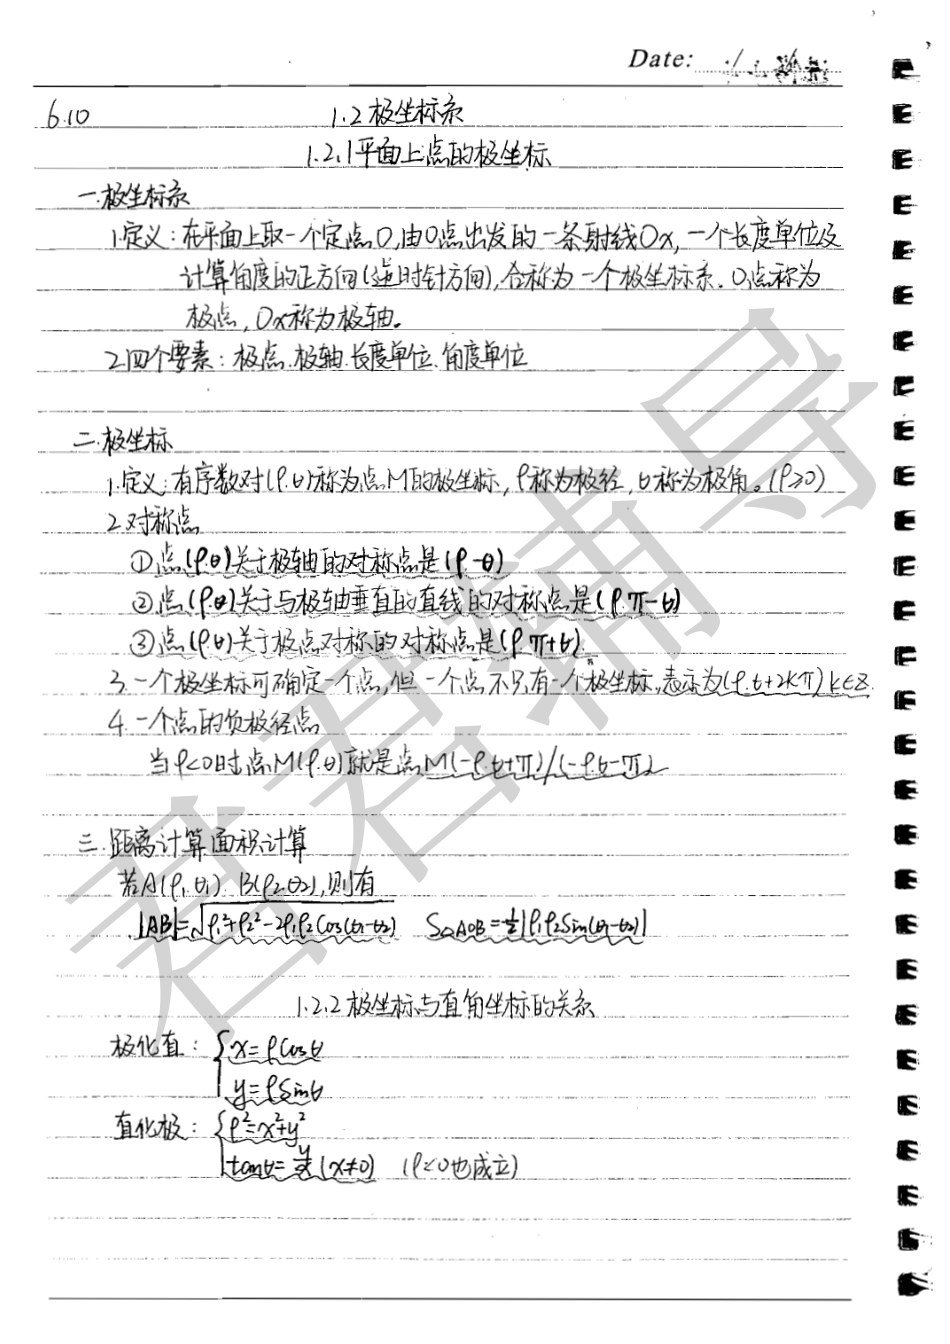 Date:
6.10 1.2 极坐标系
1.2.1平面上点的极坐标
一.极坐标系
1.定义：在平面上取一个定点O,由O点出发的一条射线Ox,一个长度单位及
计算角度的正方向(逆时针方向),合称为一个极坐标系。O点称为
极点,Ox称为极轴。
2.四个要素：极点.极轴.长度单位.角度单位
二.极坐标
1.定义:有序数对(ρ.θ)称为点M的极坐标,ρ称为极径,θ称为极角。(ρ≥0)
2.对称点
①点(ρ.θ)关于极轴的对称点是(ρ.-θ)
②点(ρ.θ)关于与极轴垂直的直线的对称点是(ρ.π-θ)
③点(ρ.θ)关于极点对称的对称点是(ρ.π+θ).
3.一个极坐标可确定一个点,但一个点不只有一个极坐标,表示为(ρ.θ+2kπ)k∈Z.
4.一个点的负极径点
当ρ<0时,点M(ρ.θ)就是点M(-ρ.θ+π)/(-ρ.θ-π)
三.距离计算面积计算
若A(ρ₁.θ₁).B(ρ₂.θ₂),则有
|AB|=√ρ₁²+ρ₂²-2ρ₁ρ₂cos(θ₁-θ₂) S△AOB=½|ρ₁ρ₂sin(θ₁-θ₂)|
1.2.2极坐标与直角坐标的关系
极化直：{x=ρcosθ
y=ρsinθ
直化极：{ρ²=x²+y²
tanθ=y/x(x≠0) (ρ<0也成立)
君君辅导